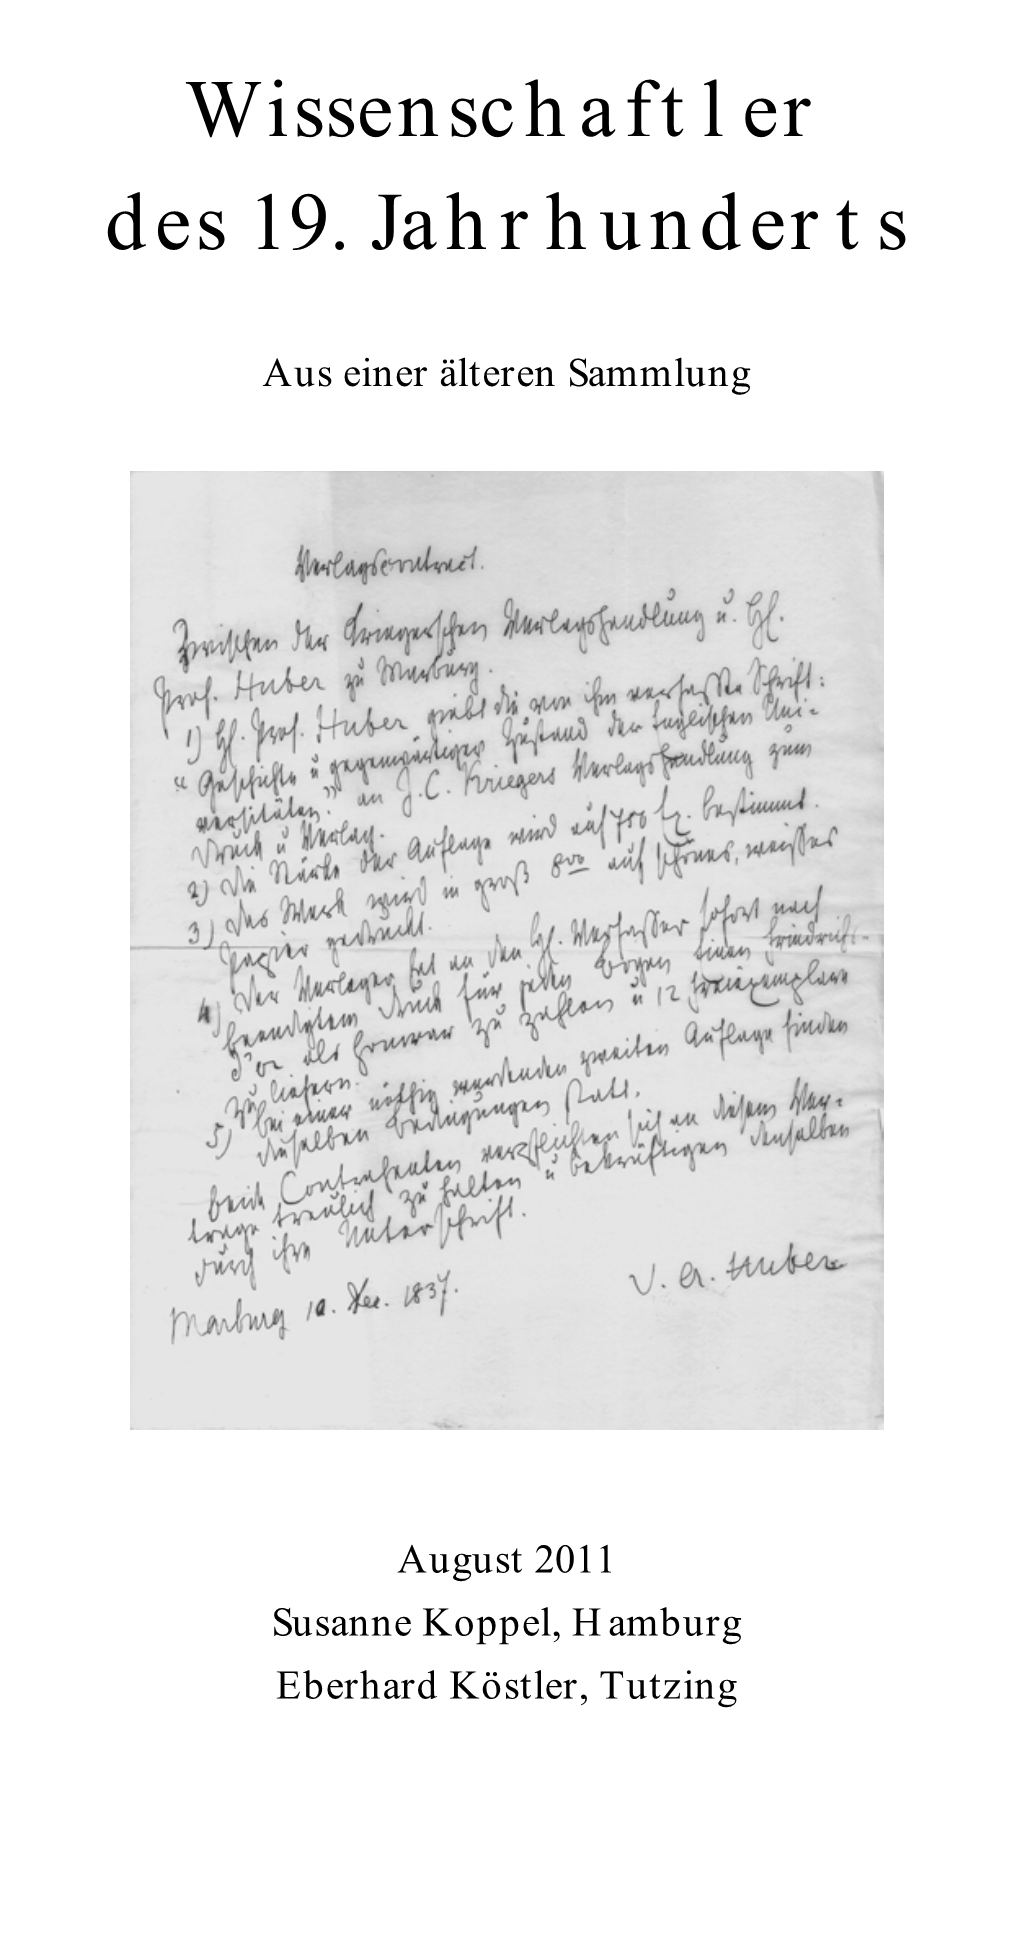 Wissenschaftler
des 19. Jahrhunderts
Aus einer älteren Sammlung
Verlagscontract.
Zwischen der Kriegerschen Verlagshandlung u. H.
Prof. Huber zu Marburg.
1) H. Prof. Huber giebt die von ihm verfaßte Schrift:
"Geschichte u gegenwärtiger Zustand der Englischen Uni-
versitäten." an J. C. Kriegers Verlagshandlung zum
Druck u Verlag.
2) Die Stärke der Auflage wird auf 750 Ex. bestimmt.
3) Das Werk wird in groß 8vo auf schönes, weisses
Papier gedruckt.
4) Der Verleger hat an den H. Verfasser sofort nach
beendigtem Druck für jeden Bogen Einen Friedrichs-
d'or als Honorar zu zahlen u 12 Freiexemplare
zu liefern.
5) Bei einer nöthig werdenden zweiten Auflage finden
dieselben Bedingungen statt.
Beide Contrahenten verpflichten sich an diesem Ver-
trage treulich zu halten u bekräftigen denselben
durch ihre Unterschrift.
Marburg 10. Dec. 1837.
V. A. Huber
August 2011
Susanne Koppel, Hamburg
Eberhard Köstler, Tutzing